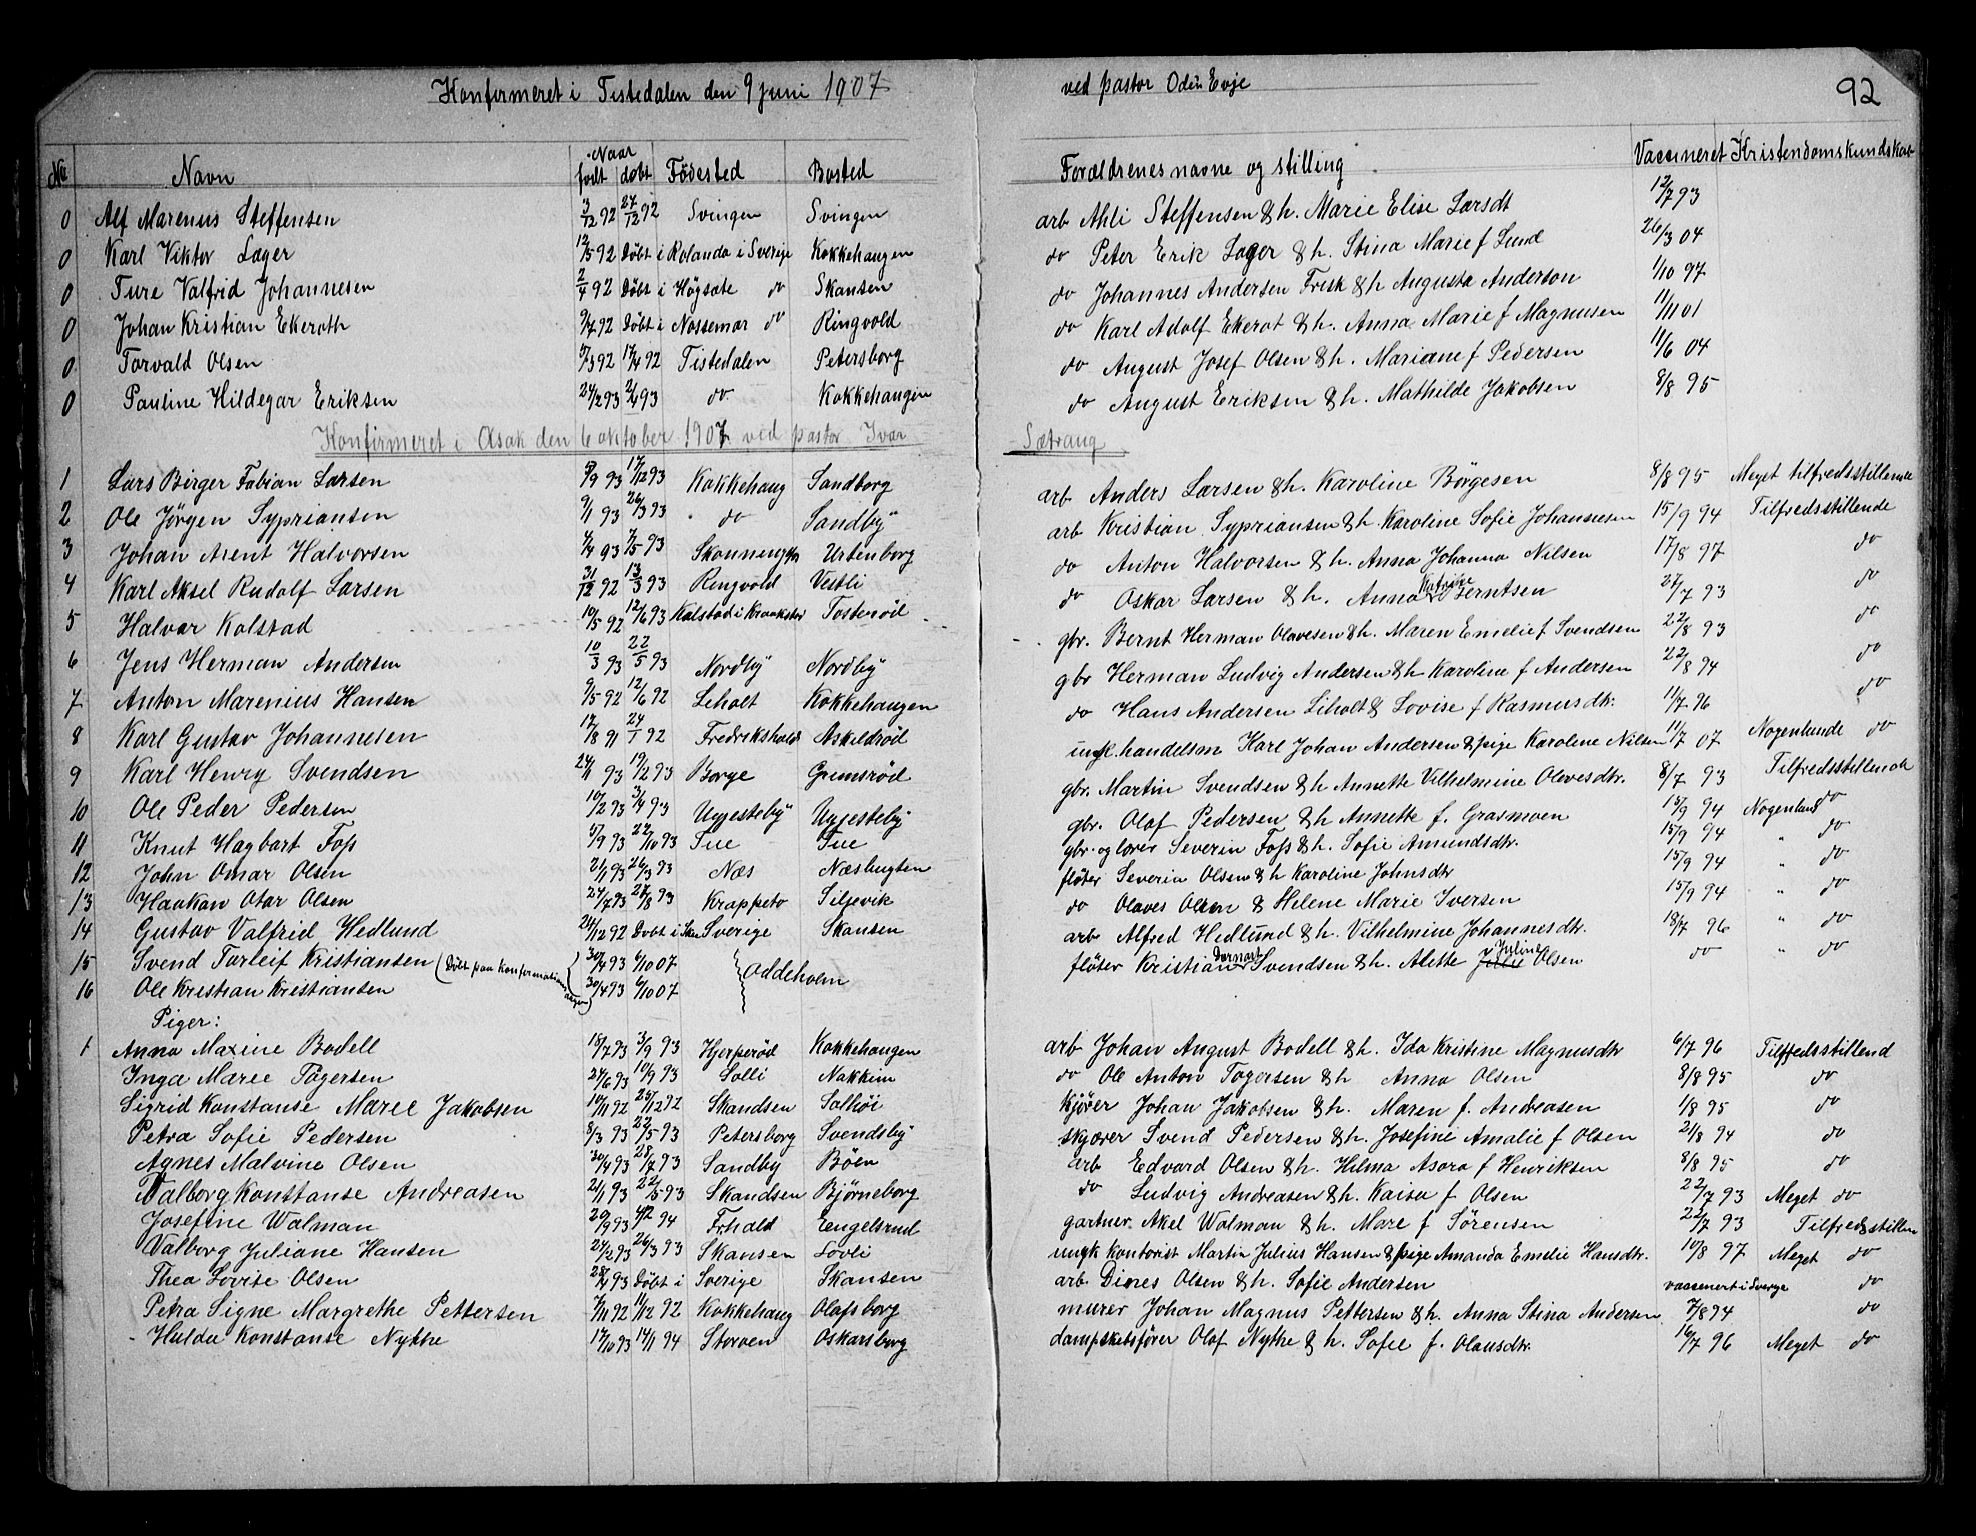 Konfirmeret i Tistedalen den 9 juni 1907 ved pastor Odin Evje 92
No Navn Naar født døbt Fødested Bosted Forældrenes navne og stilling Vaccineret Kristendomskundskab
0 Alf Marenius Steffensen 3/12 92 27/12 92 Svingen Svingen arb Ahli Steffensen & h. Marie Elise Larsdt 12/7 93
0 Karl Viktor Lager 12/5 92 Døbt i Rolanda i Sverige Kokkehaugen do Peter Erik Lager & h. Stina Marie f Lund 26/3 04
0 Ture Valfrid Johannesen 2/4 92 Døbt i Høgsäte do Skansen do Johannes Andersen Fresk & h Augusta Anderson 1/10 97
0 Johan Kristian Ekeroth 9/7 92 Døbt i Nossemar do Ringvold do Karl Adolf Ekerot & h. Anna Marie f Magnusen 11/11 01
0 Torvald Olsen 5/3 92 17/4 92 Tistedalen Petersborg do August Josef Olsen & h. Mariane f Pedersen 11/6 04
0 Pauline Hildegar Eriksen 24/2 93 2/4 93 do Kokkehaugen do August Eriksen & h. Mathilde Jakobsen 8/8 95
Konfirmeret i Asak den 6 oktober 1907 ved pastor Ivar Sætrang
1 Lars Birger Fabian Larsen 5/9 93 17/12 93 Kokkehaug Sandborg arb Anders Larsen & h. Karoline Børgesen 8/8 95 Meget tilfredsstillende
2 Ole Jørgen Sypriansen 9/1 93 26/3 93 do Sandby arb Kristian Sypriansen & h. Karoline Sofie Johannesen 15/9 94 Tilfredsstillende
3 Johan Arent Halvorsen 4/4 93 7/5 93 Skonningfos Urtenborg do Anton Halvorsen & h. Anna Johanna Nilsen 17/8 97 do
4 Karl Aksel Rudolf Larsen 31/12 92 13/3 93 Ringvold Vestli do Oskar Larsen & h. Anna Katrine Berntsen 27/7 93 do
5 Halvar Kolstad 10/5 92 12/6 93 Kolstad i Kraakstad Tosterød gbr. Bernt Herman Olavesen & h. Maren Emelie f Svendsen 22/8 93 do
6 Jens Herman Andersen 10/3 93 22/5 93 Nordby Nordby gbr Herman Ludvig Andersen & h Karoline f Andersen 22/8 94 do
7 Anton Marenius Hansen 9/5 92 12/6 92 Leholt Kokkehaugen do Hans Andersen Liholt & Lovise f Rasmusdtr. 11/7 96 do
8 Karl Gustav Johannesen 17/8 91 24/1 92 Fredrikshald Askildrød ungk. handelsm Karl Johan Andersen & pige Karoline Nilsen 11/7 07 Nogenlunde do
9 Karl Henry Svendsen 24/1 93 19/12 93 Borge Grimsrød gbr. Martin Svendsen & h Annette Vilhelmine Olavesdtr. 8/7 93 Tilfredsstillende
10 Ole Peder Pedersen 10/2 93 3/4 93 Ugjesteby Ugjesteby gbr. Olaf Pedersen & h Annette f. Grasmoen 15/9 94 Nogenlund do
11 Knut Hagbart Foss 5/9 93 22/10 93 Tue Tue gbr. og lærer Severin Foss & h. Sofie Amundsdtr. 15/9 94 " do
12 John Omar Olsen 21/1 93 26/3 93 Næs Næsbugten fløter Severin Olsen & h Karoline Johnsdtr 15/9 94 " do
13 Haakan Otar Olsen 27/7 93 27/8 93 Krappeto Siljevik do Olaves Olsen & Helene Marie Iversen 15/9 94 " do
14 Gustav Valfrid Hedlund 24/12 92 Døbt i Skee Sverige Skansen arb Alfred Hedlund & h. Vilhelmine Johannesdtr. 18/7 96 " do
15 Svend Torleif Kristiansen (Døbt paa konfirmationsdagen) 30/4 93 6/10 07 Oddeholm fløter Kristian Bernart Svendsen & h. Alette Julie Juline Olsen do " do
16 Ole Kristian Kristiansen 30/4 93 6/10 07
Piger:
1 Anna Maxine Bodell 15/7 93 3/9 93 Hjerperød Kokkehaugen arb Johan August Bodell & h. Ida Kristine Magnusdtr 6/7 96 Tilfredsstillend
Inga Marie Togersen 27/6 93 10/9 93 Solli Nakkim do Ole Anton Togersen & h Anna Olsen 8/8 95 do
Sigrid Konstanse Marie Jakobsen 10/11 92 25/12 92 Skandsen Solhøi kjører Johan Jakobsen & h. Maren f. Andreasen 1/8 95 do
Petra Sofie Pedersen 8/3 93 22/5 93 Petersborg Svendsby skjærer Svend Pedersen & h. Josefine Amalie f Olsen 21/8 94 do
Agnes Malvine Olsen 30/4 93 28/7 93 Sandby Bøen arb Edvard Olsen & h. Hilma Asora f Henriksen 8/8 95 do
Valborg Konstanse Andreasen 21/1 93 22/5 93 Skandsen Bjørneborg do Ludvig Andreasen & h. Kaisa f Olsen 22/7 93 Meget do
Josefine Walman 20/9 93 4/2 94 Frhald Engelsrud gartner. Akel Walman & h. Mare f Sørensen 22/7 93 Tilfredsstillen
Valborg Juliane Hansen 27/2 93 26/3 93 Skansen Lovli ungk kontorist Martin Julius Hansen & pige Amanda Emelie Hansdtr. 10/8 97 Meget do
Thea Lovise Olsen 28/4 93 Døbt i Sverige Skansen arb. Dines Olsen & h. Sofie Andersen vassenert i Sverge do
Petra Signe Margrethe Pettersen 7/11 92 11/12 92 Kokkehaug Olafsborg murer Johan Magnus Pettersen & h. Anna Stina Andersen 7/8 94 do
Hulda Konstanse Nythe 17/10 93 14/1 94 Storoen Oskarsborg dampskibsfører Olaf Nythe & h. Sofie f. Olausdtr. 16/7 96 Meget do